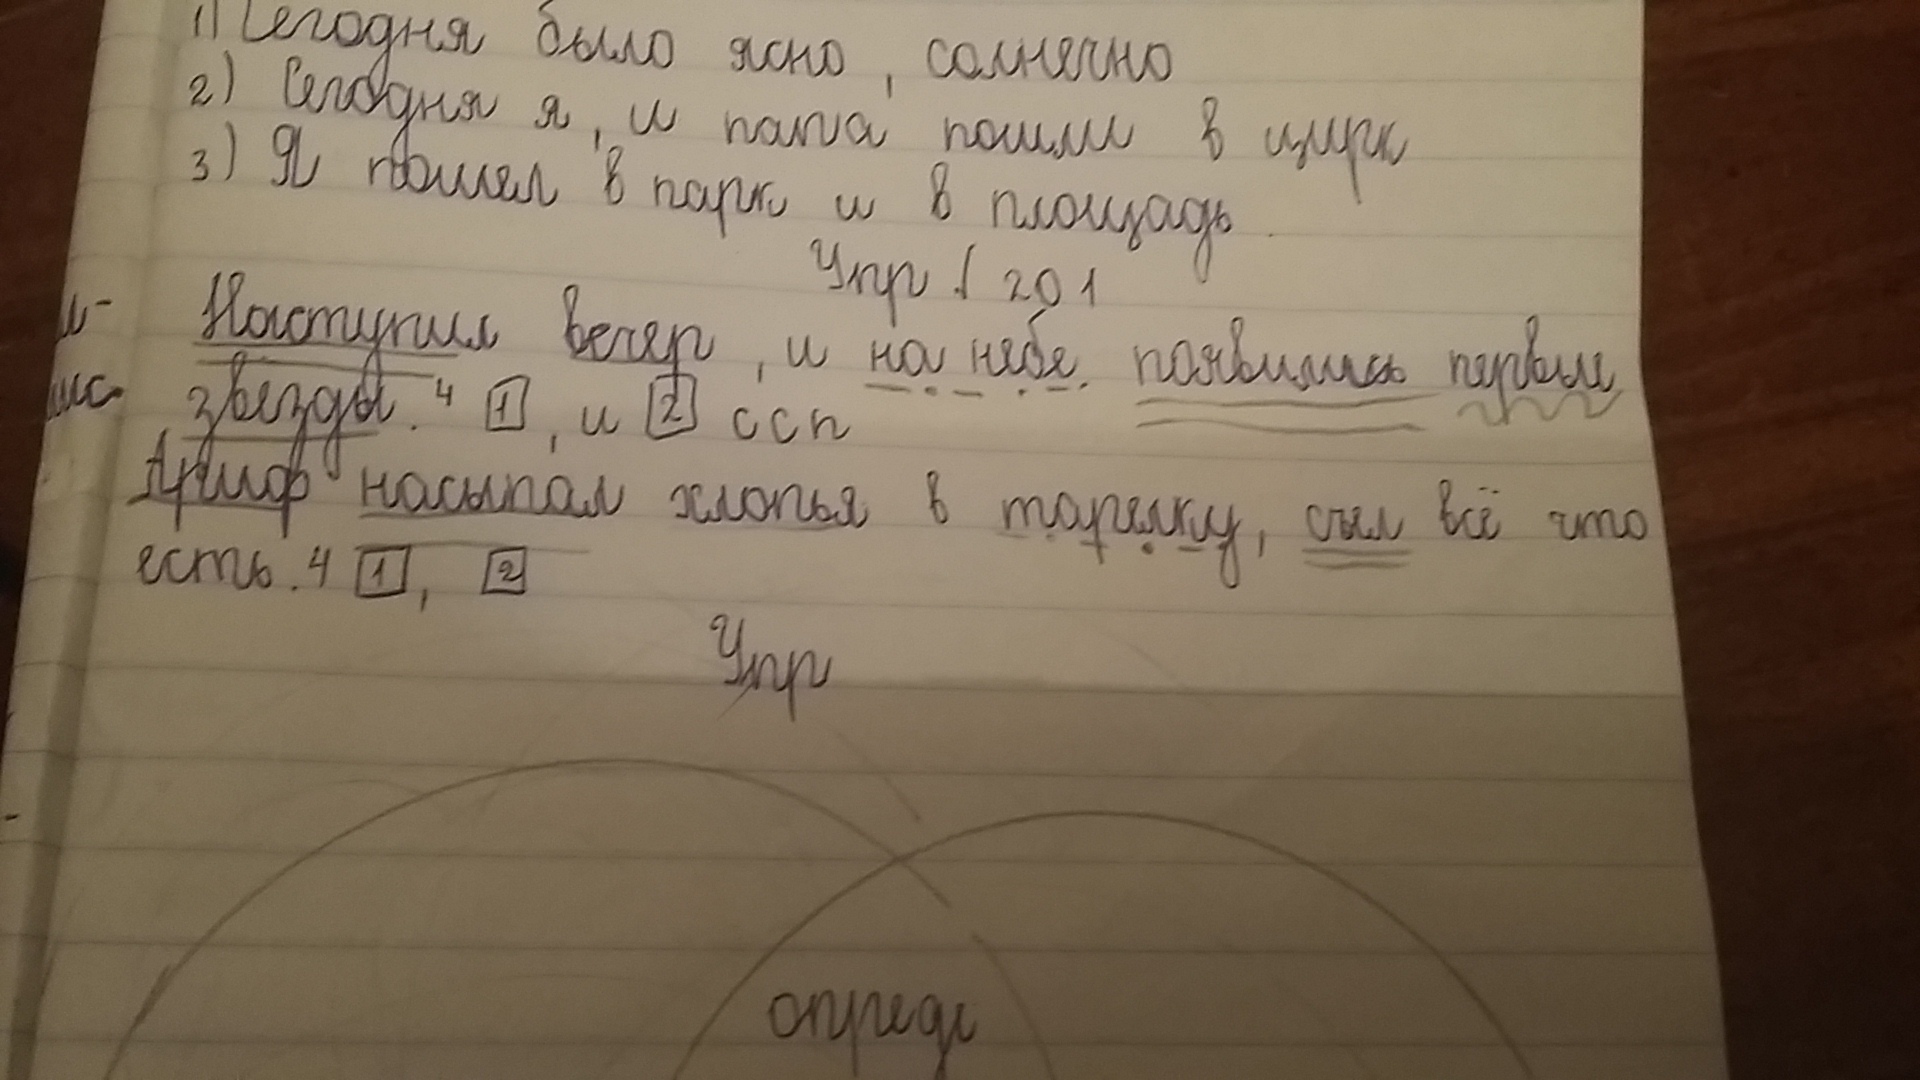 1) Сегодня было ясно, солнечно
2) Сегодня я, и папа пошли в цирк
3) Я пошел в парк и в площадь.
Упр 201
Наступил вечер, и на небе появились первые
звезды. 4 1, и 2 ссп
Ариф насыпал хлопья в тарелку, съел всё что
есть. 4 1, 2
Упр
опреде